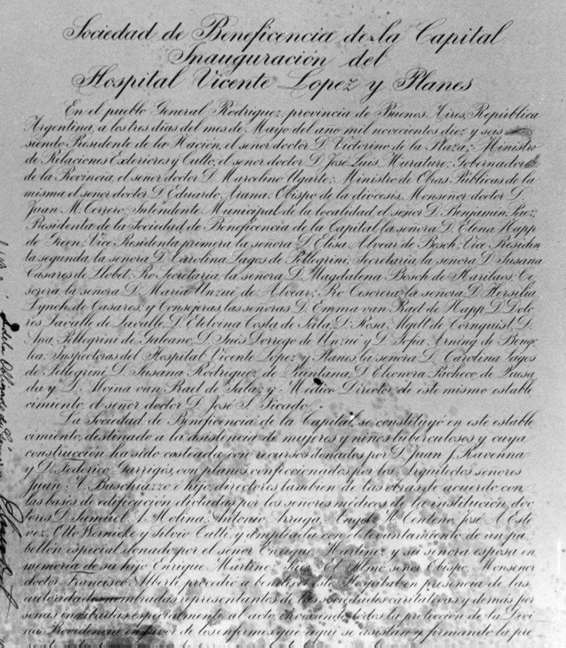 Sociedad de Beneficencia de la Capital
Inauguración del
Hospital Vicente Lopez y Planes
En el pueblo General Rodriguez, provincia de Buenos Aires, República
Argentina, a los tres días del mes de Mayo del año mil novecientos diez y seis
siendo Presidente de la Nación, el señor doctor D. Victorino de la Plaza; Ministro
de Relaciones Exteriores y Culto, el señor doctor D. José Luis Murature; Gobernador
de la Provincia, el señor doctor D. Marcelino Ugarte; Ministro de Obras Públicas de la
misma el señor doctor D. Eduardo Arana; Obispo de la diócesis, Monseñor doctor D.
Juan N. Terrero; Intendente Municipal de la localidad el señor D. Benjamin
Presidenta de la Sociedad de Beneficencia de la Capital, la señora D. Elena Napp
de Green; Vice Presidenta primera la señora D. Elisa Alvear de Bosch; Vice Presiden
ta segunda, la señora D. Carolina Lagos de Pellegrini; Secretaria la señora D. Susana
Casares de Llobet; Pro Secretaria, la señora D. Magdalena Bosch de Harilaos; Te
sorera la señora D. Maria Unzué de Alvear; Pro Tesorera, la señora D. Hersilia
Lynch de Casares, y Consejeras las señoras D. Emma van Prael de Napp, D. Dolo
res Lavalle de Lavalle, D. Etelvina Costa de Sala, D. Rosa de Tornquist, D.
Ana Pellegrini de Galeano, D. Inés Dorrego de Unzué y D. Sofia Arning de Beng
lea. Inspectoras del Hospital Vicente Lopez y Planes la señora D. Carolina Lagos
de Pellegrini, D. Susana Rodriguez de Quintana, D. Eleonora Pacheco de
da y D. van Prael de y Médico Director de este mismo estable
cimiento el señor doctor D. José S. Picado.
La Sociedad de Beneficencia de la Capital, se constituyó en este estable
cimiento, destinado a la asistencia de mujeres y niños tuberculosos y cuya
construcción ha sido costeada con recursos donados por D. Juan J. Ravenna
y D. Federico Garrigós, con planos confeccionados por los Arquitectos señores
Juan A. Buschiazzo e hijo, directores tambien de las obras de acuerdo con
las bases de edificación dictadas por los señores médicos de la institución, doc
tores D. Samuel Molina, Antonio Centeno, José A. Este
vez, Otto Wernicke y Silvio Tatti, y ampliada con el levantamiento de un pa
bellón especial donado por el señor Enrique Martinez y su señora esposa en
memoria de su hijo Enrique Martino El Iltmo señor Obispo Monseñor
doctor Francisco Alberti procedió a bendecir el Hospital en presencia de las
autoridades nombradas representantes de las sociedades caritativas y demás per
sonas invitadas especialmente al acto, invocando todos la protección de la Divi
na Providencia en favor de los enfermos que aqui se asistan y firmando la pre